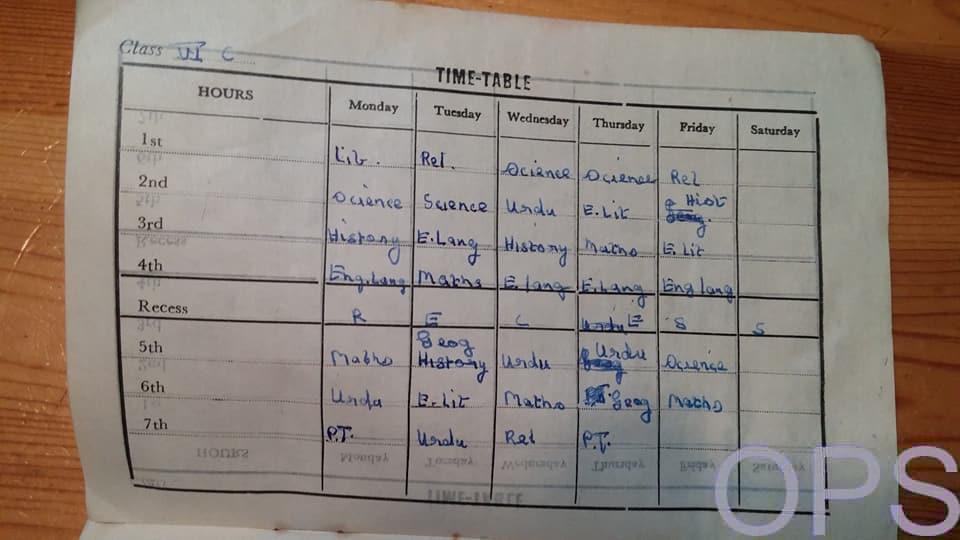 Class VI C
TIME-TABLE
HOURS Monday Tuesday Wednesday Thursday Friday Saturday
1st Lit. Rel. Science Science Rel
2nd Science Science Urdu E.Lit Hist
3rd History E.Lang History Maths E.Lit
4th Eng.Lang Maths E.lang E.Lang Eng lang
Recess R E C E S S
5th Maths Geog History Urdu Urdu Science
6th Urdu E.Lit Maths Geog Maths
7th P.T. Urdu Rel P.T.
HOURS Monday Tuesday Wednesday Thursday Friday Saturday
TIME-TABLE
OPS